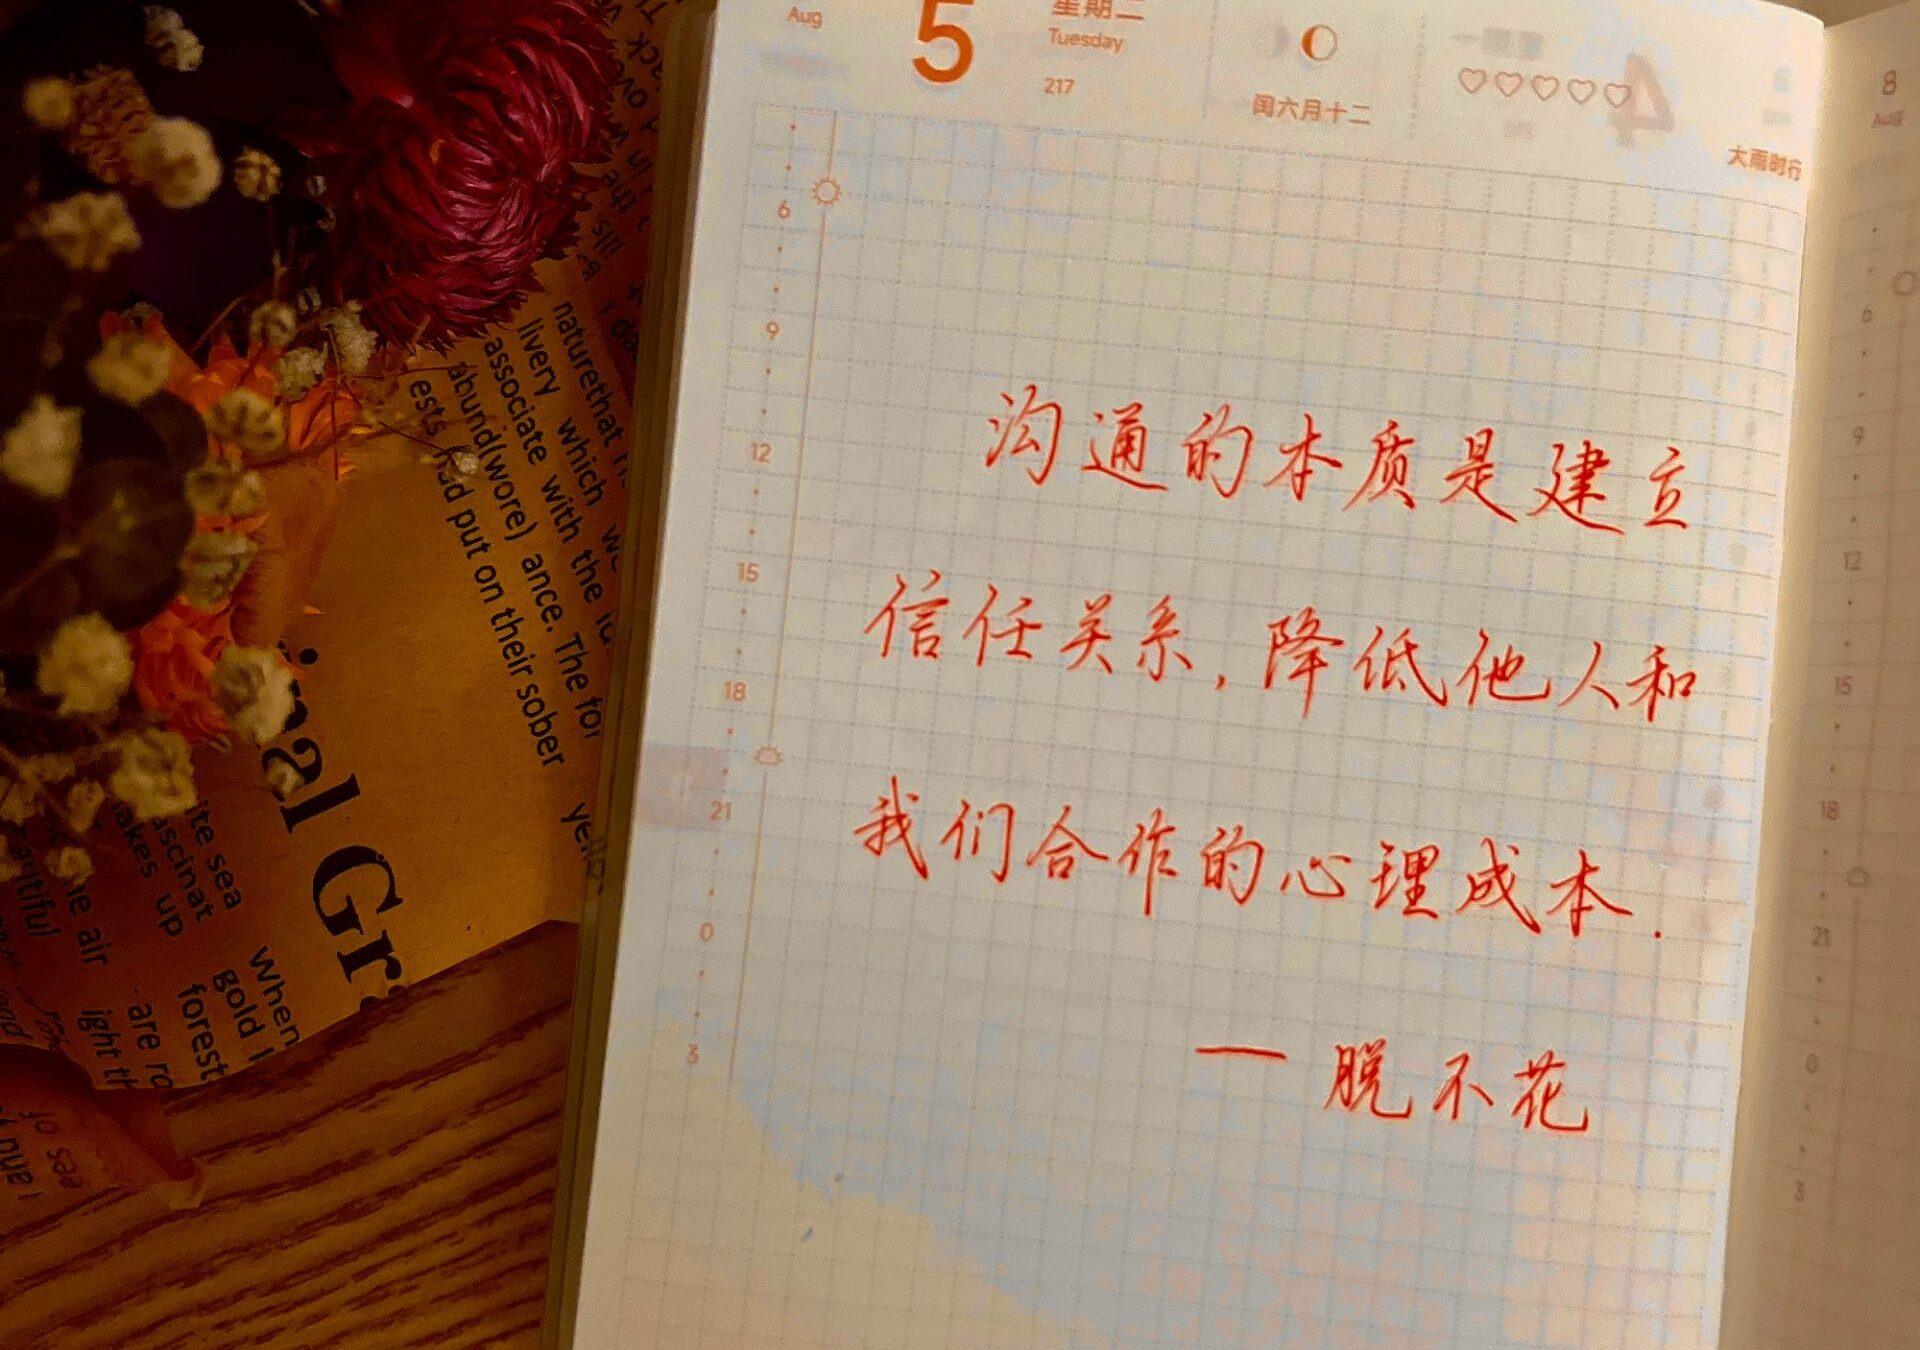 Aug
5
星期二
Tuesday
217
闰六月十二
4
大雨时行
6
9
12
15
18
21
0
3
沟通的本质是建立
信任关系,降低他人和
我们合作的心理成本.
— 脱不花
8
Aug
6
9
12
15
18
21
0
3
naturethat
livery which we
associate with the
abund(wore) ance. The for
ests had put on their sober
nal Gr
ite sea
ascinat
akes up
When
gold
forest
the air
are ro
ight th